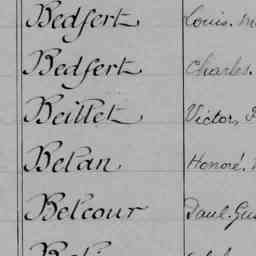 Bedfert Louis.
Bedfert Charles.
Beillet Victor,
Belan Honoré.
Belcour Paul.